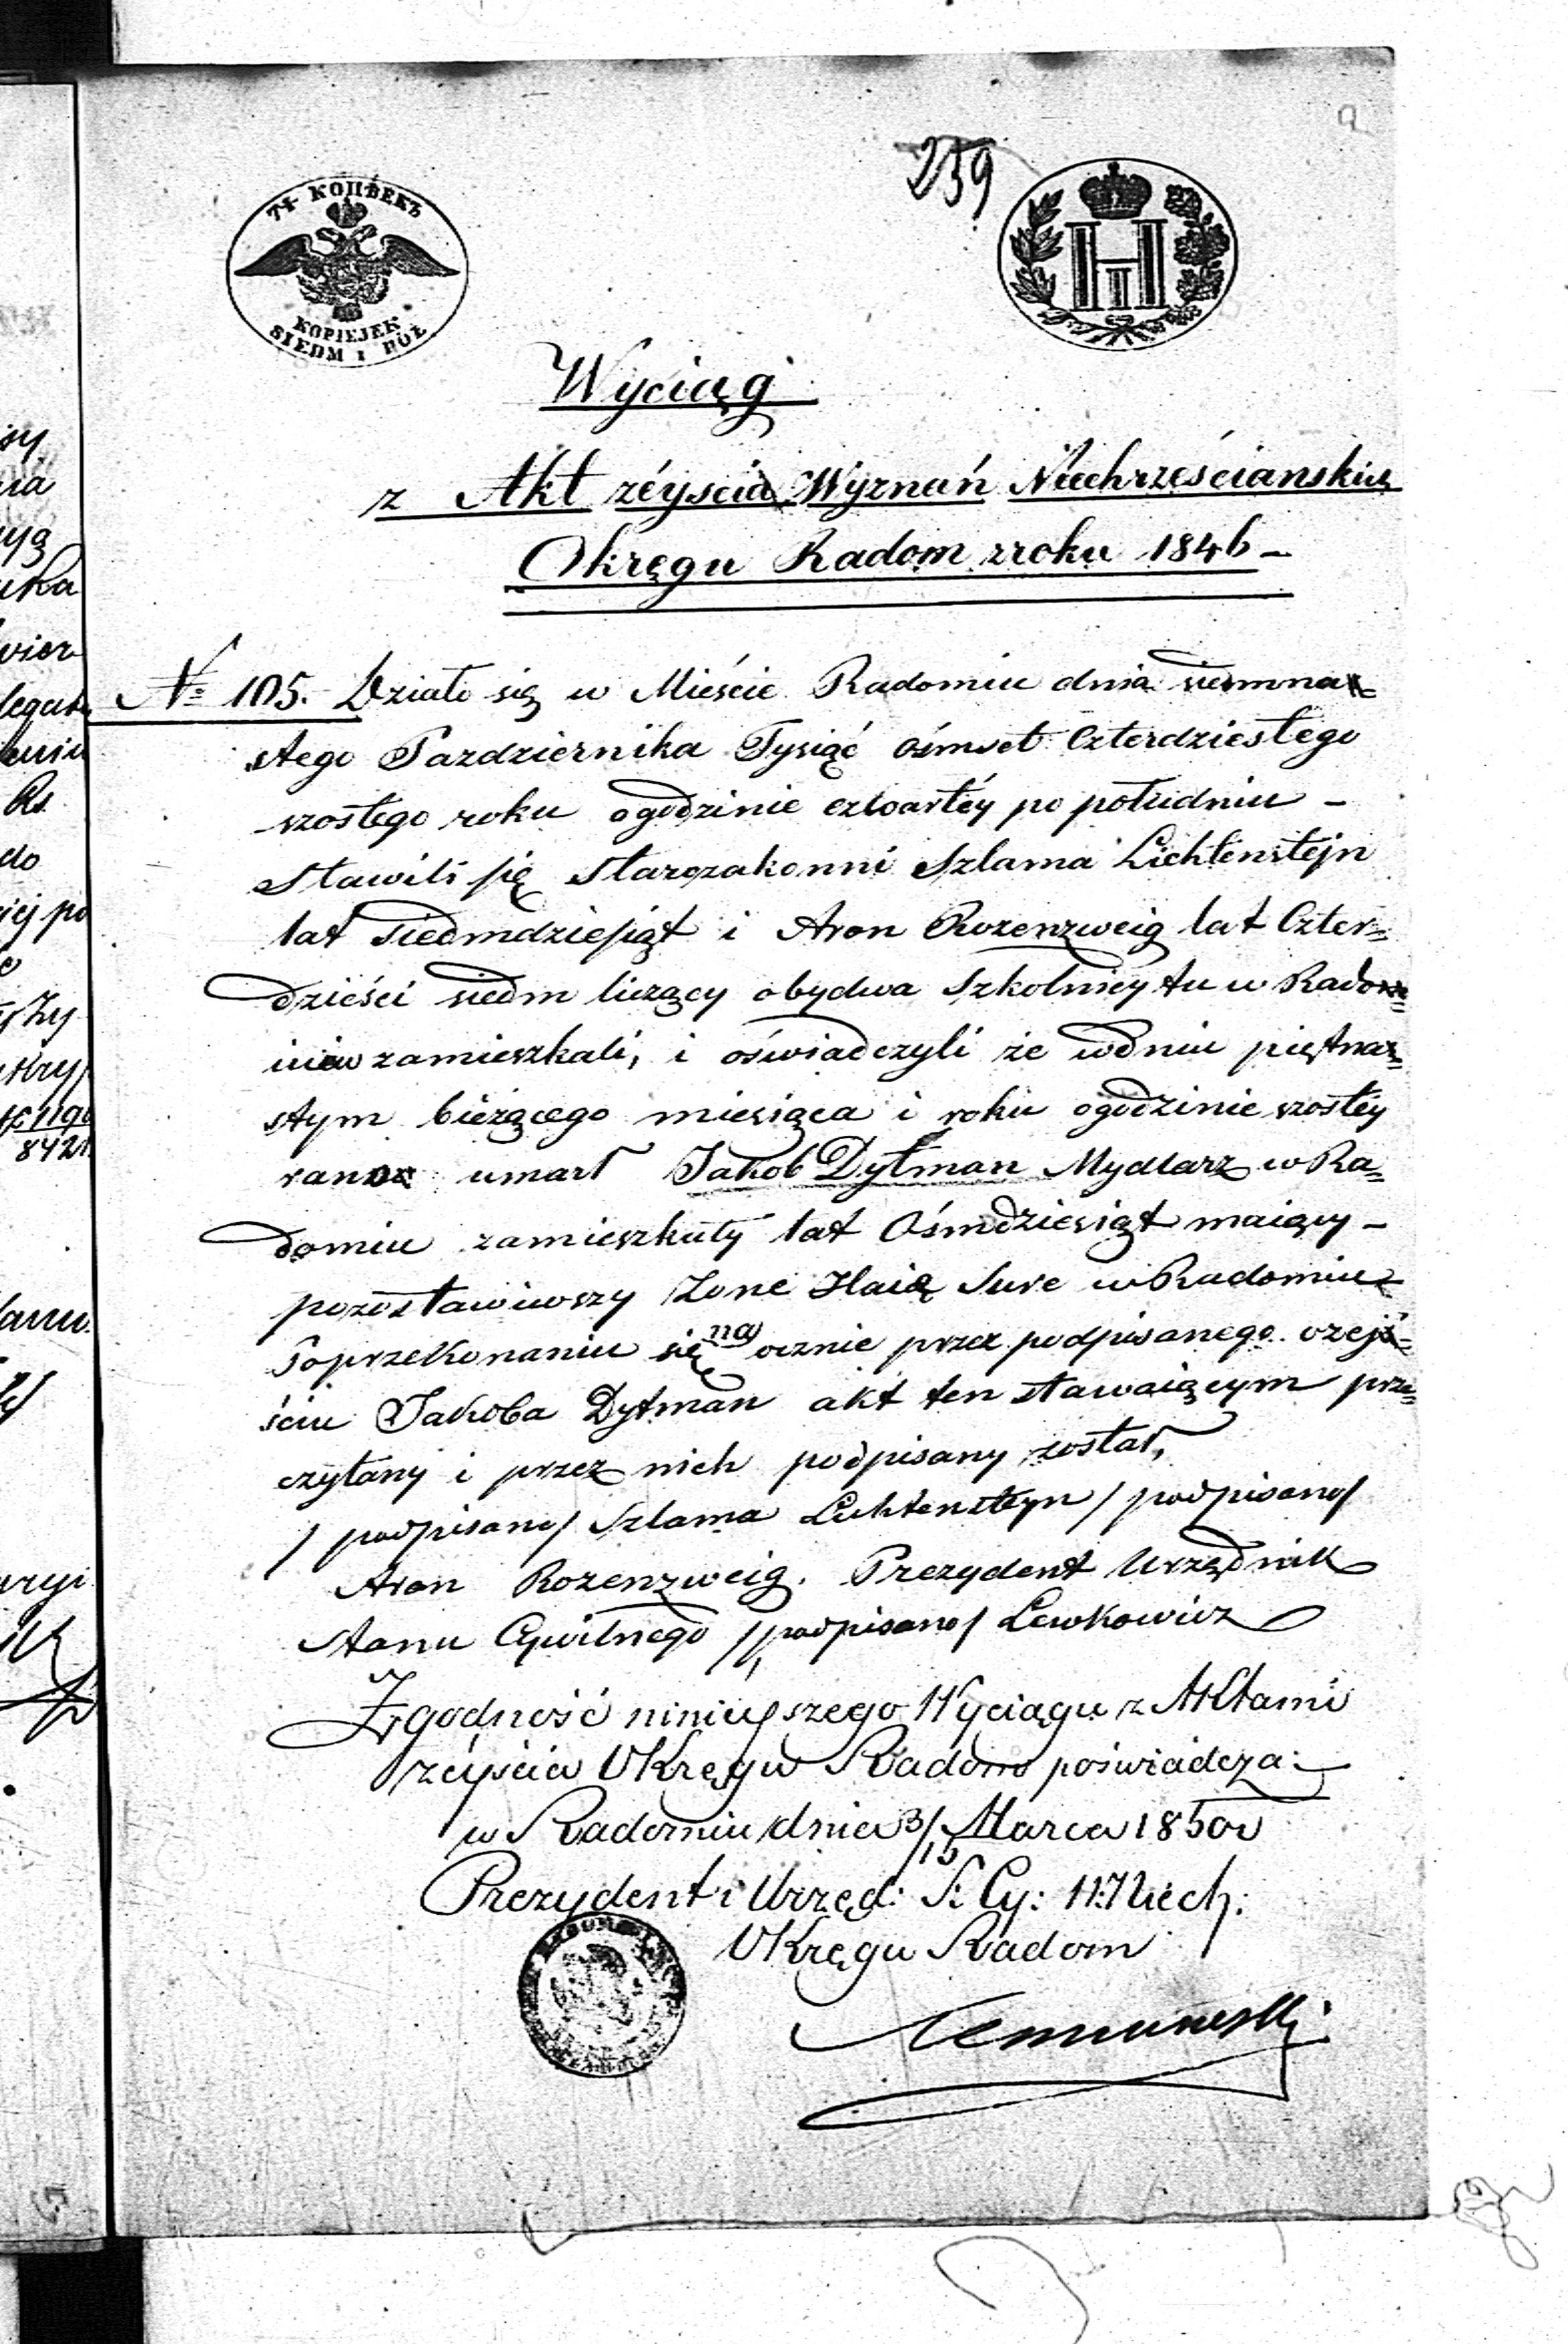 259
7½ КОПѢЕКЪ
KOPIEJEK
SIEDM I PÓŁ
Wyciąg
z Akt zéyscia Wyznań Niechrześcianskich
Okręgu Radom z roku 1846 –
№ 105. Działo się w Mieście Radomiu dnia siedmna=
stego Pazdziernika Tysiąć ośmset Czterdziestego
szostego roku o godzinie czwartéy po południu –
Stawili się Starozakonni Szlama Lichtenstejn
lat siedmdziesiąt i Aron Rozenzweig lat Czter=
dzieści siedm liczący obydwa Szkolnicy tu w Radom=
iu zamieszkali, i oświadczyli że w dniu piętna=
stym bieżącego miesiąca i roku o godzinie szostey
rano umarł Jakob Dytman Mydlarz w Ra=
domiu zamieszkały lat Ośmdziesiąt maiący –
pozostawiwszy Zone Haię Sure w Radomiu
Po przekonaniu się naocznie przez podpisanego o zejś=
ściu Jakoba Dytman akt ten stawaiącym prze=
czytany i przez nich podpisany został,
/ podpisano / Szlama Lichtensteyn / podpisano /
Aron Rozenzweig. Prezydent Urzędnik
Stanu Cywilnego / podpisano / Lewkowicz
Zgodność ninieyszego Wyciągu z Aktami
zéyścia Okręgu Radom poświadcza:
w Radomiu dnia 3/15 Marca 1850 r
Prezydent i Urzęd: S: Cy: W: Niech:
Okręgu Radom